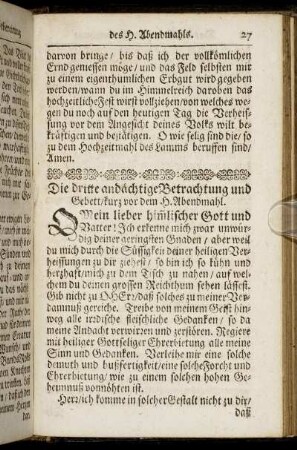 des H. Abendmahls. 27
darvon bringe/ biß daß ich der vollkömlichen
Ernd geniessen möge/ und das Feld selbsten mir
zu einem eigenthumlichen Erbgut wird gegeben
werden/wann du im Himmelreich daroben das
hochzeitliche Fest wirst vollziehen/von welches we-
gen du noch auf den heutigen Tag die Verheis-
sung vor dem Angesicht deines Volks wilt be-
kräftigen und bejätigen. O wie selig sind die/ so
zu dem Hochzeitmahl des Lamms beruffen sind/
Amen.
Die dritte andächtige Betrachtung und
Gebett/kurz vor dem H. Abendmahl.
O Mein lieber him̃lischer Gott und
Vatter! Ich erkenne mich zwar unwür-
dig deiner geringsten Gnaden/ aber weil
du mich durch die Süssigkeit deiner heiligen Ver-
heissungen zu dir ziehest/ so bin ich so kühn und
herzhaft/mich zu dem Tisch zu nahen/ auf wel-
chem du deinen grossen Reichthum sehen lässest.
Gib nicht zu O HErr/ daß solches zu meiner Ver-
dammuß gereiche. Treibe von meinem Geist hin-
weg alle irrdische fleischliche Gedanken/ so da
meine Andacht verwirren und zerstören. Regiere
mit heiliger Gottseliger Ehrerbietung alle meine
Sinn und Gedanken. Verleihe mir eine solche
demuth und bußfertigkeit/eine solche Forcht und
Ehrerbietung/wie zu einem solchen hohen Ge-
heymnuß vonnöhten ist.
Herr/ich komme in solcher Gestalt nicht zu dir/
daß